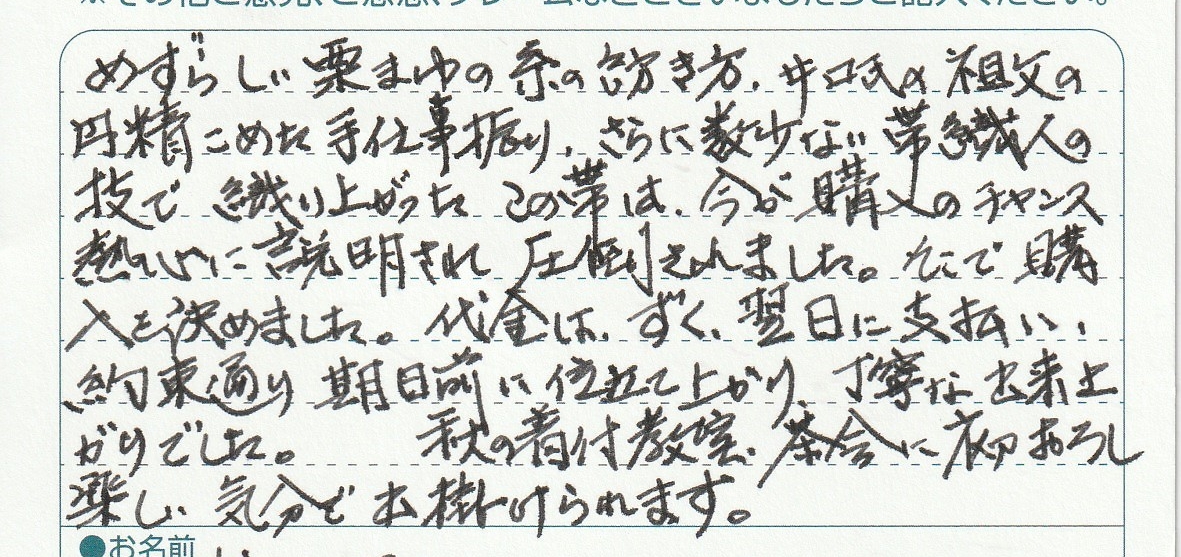 ※その他ご意見、ご感想、クレームなどございましたらご記入ください。
めずらしい栗まゆの糸の紡き方、井口氏の祖父の
丹精こめた手仕事振り、さらに数少ない帯織人の
技で織り上がったこの帯は、今が購入のチャンス
熱心に説明され圧倒されました。そこで購
入を決めました。代金は、すぐ、翌日に支払い、
約束通り期日前に仕立て上がり、丁寧な出来上
がりでした。 秋の着付教室、茶会に初おろし
楽しい気分で出掛けられます。
●お名前